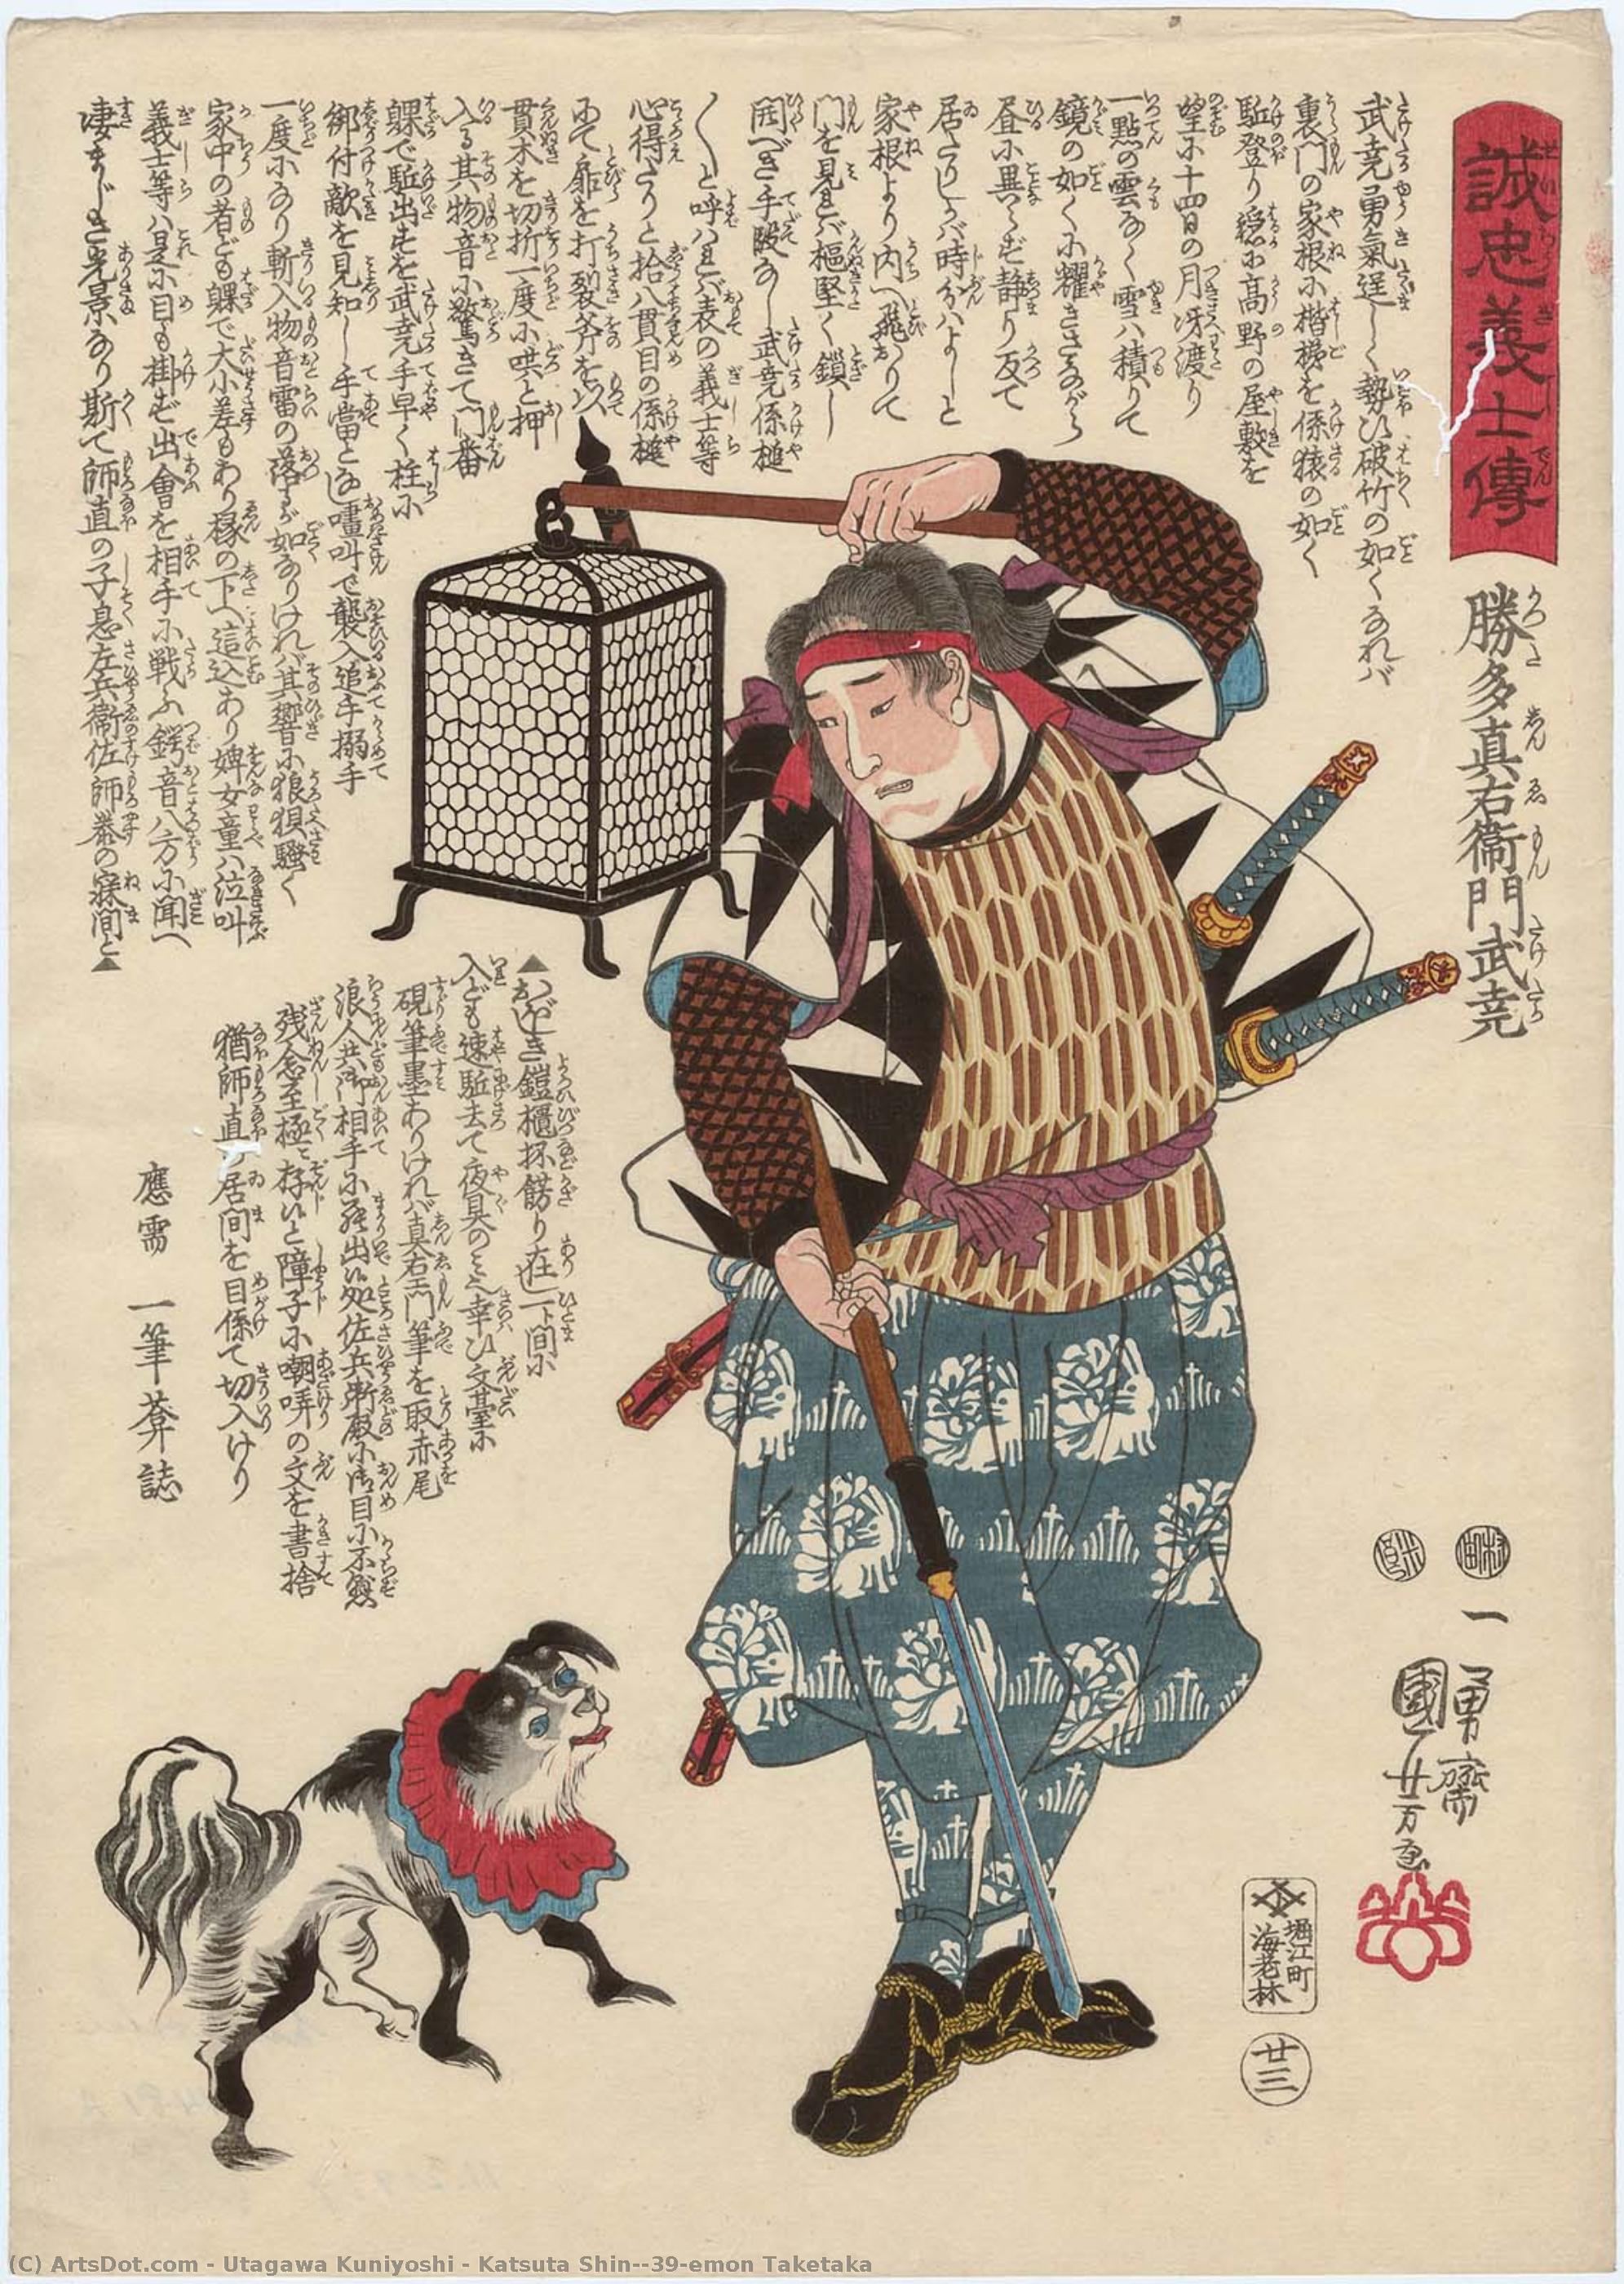 誠忠義士傳
勝多真右衛門武尭
武尭勇氣逞しく勢ひ破竹の如くなれバ
裏門の家根に楷梯を係猿の如く
駈登り遥に高野の屋敷を
望に十四日の月冴渡り
一點の雲なく雪ハ積りて
鏡の如くに耀きさながら
昼に異らず静り反て
居たりしバ時分ハよしと
家根より内へ飛おりて
門を見れバ枢堅く鎖し
開べき手段なし武尭係槌
〱と呼ハれバ表の義士等
心得たりと拾八貫目の係槌
にて扉を打裂斧を以
貫木を切折一度に哄と押
入る其物音に驚きて門番
躶で駈出るを武尭手早く柱に
御付敵を見知し手當と
叫で襲入追手搦手
一度になり斬入物音雷の落るが如なりけれバ其響に狼狽騒く
家中の者ども躶で大小差もあり椽の下へ這込あり婢女童ハ泣叫
義士等ハ是に目も掛ず出會を相手に戦ふ鍔音八方に聞へ
凄まじき光景なり斯て師直の子息左兵衛佐師泰の寐間と▲
▲おぼしき鎧櫃抔餝り在一ト間に
入ども速駈去て夜具のミ幸ひ文臺に
硯筆墨ありけれバ真右エ門筆を取赤尾
浪人共御相手に罷出候処佐兵衛殿に御目に不懸
残念至極と存候と障子に嘲哢の文を書捨
猶師直の居間を目係て切入けり
應需 一筆葊誌
村田
米良
一勇齋
國芳画
堀江町
海老林
廿三
(C) ArtsDot.com - Utagawa Kuniyoshi - Katsuta Shin--39-emon Taketaka